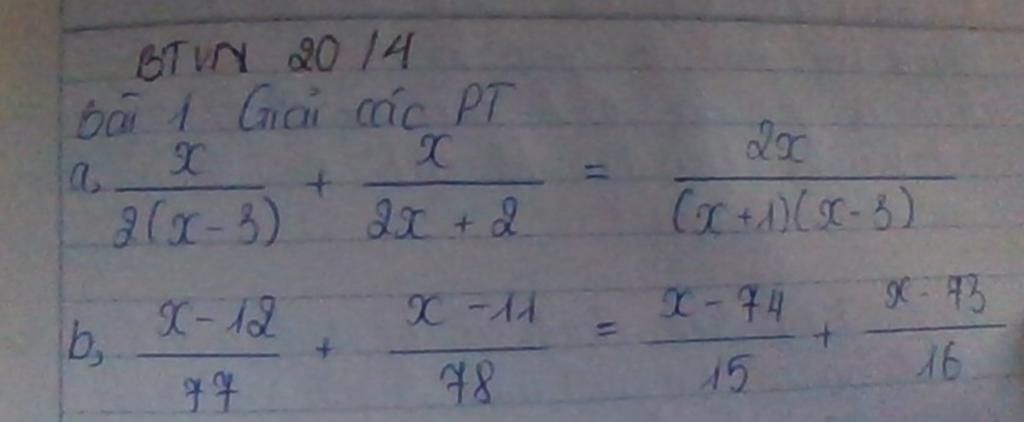 BTVN 20/4
bài 1 Giải các PT
a, x/2(x-3) + x/2x+2 = 2x/(x+1)(x-3)
b, x-12/77 + x-11/78 = x-74/15 + x-73/16